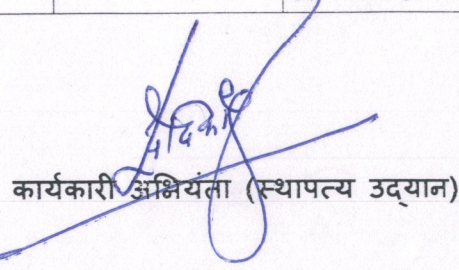 कार्यकारी अभियंता (स्थापत्य उद्यान)